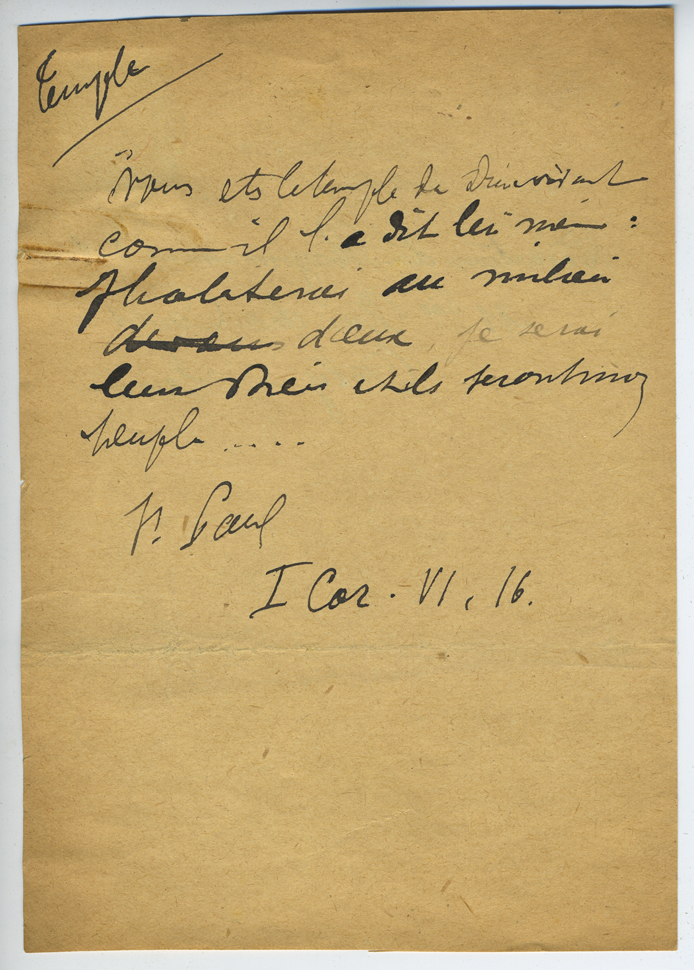 Temple
"vous ets le temple du Dieu vivant
comm il l'a dit lui mem :
J'habiterai au milieu
d'eux, je serai
leur Dieu et ils seront mon
peuple ....
St. Paul
I Cor. VI, 16.